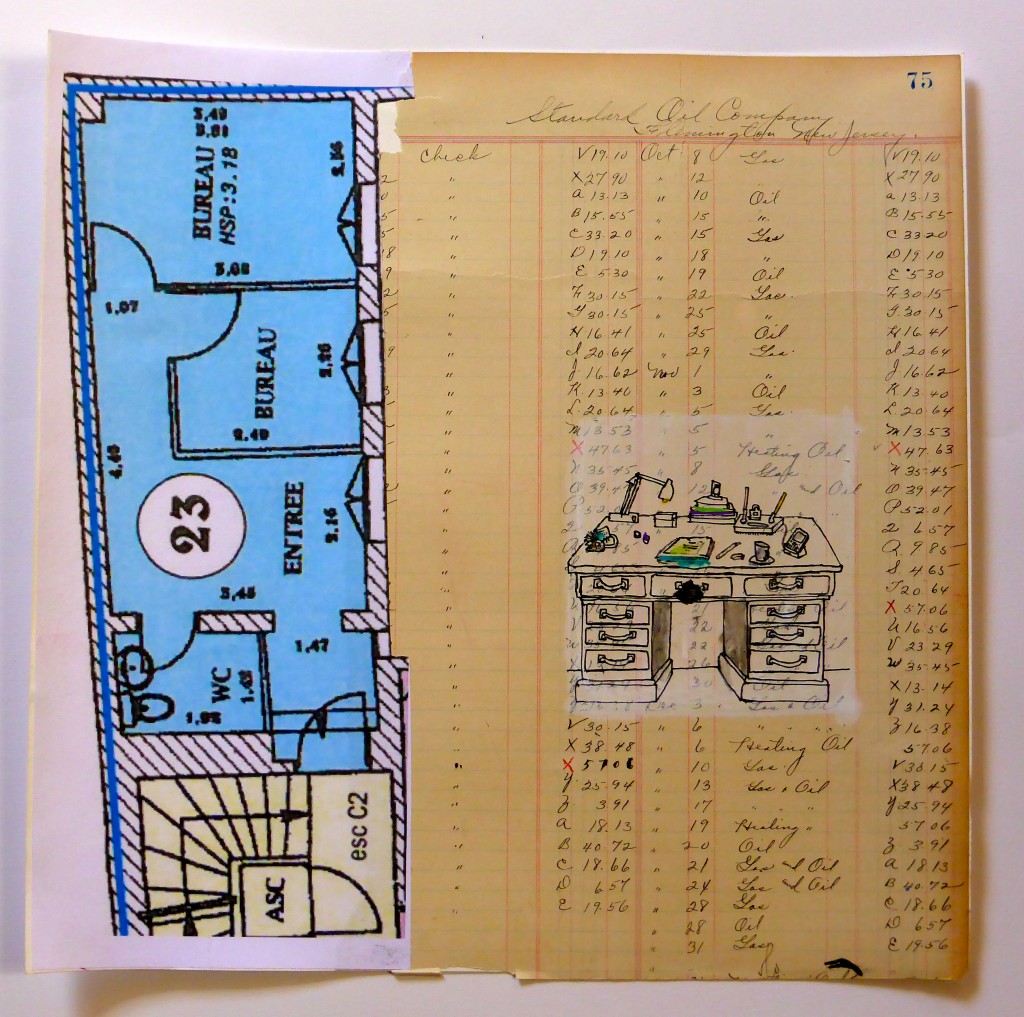 75
Standard Oil Company
Flemington New Jersey.
Check V19.10 Oct 8 Gas V19.10
" X27.90 " 12 X27.90
" a 13.13 " 10 Oil a 13.13
" B 15.55 " 15 " B 15.55
" C 33.20 " 15 Gas C 33.20
" D 19.10 " 18 " D 19.10
" E 5.30 " 19 Oil E 5.30
" F 30.15 " 22 Gas F 30.15
" G 30.15 " 25 " G 30.15
" H 16.41 " 25 Oil H 16.41
" I 20.64 " 29 Gas I 20.64
" J 16.62 Nov 1 " J 16.62
" K 13.40 " 3 Oil K 13.40
" L 20.64 " 5 Gas L 20.64
" M 13.53 " 5 " M 13.53
" X 47.63 " 5 Heating Oil X 47.63
" N 35.45 " 8 Gas N 35.45
" O 39.47 12 Oil O 39.47
P 52.01
Q 9.85
S 4.65
T 20.64
X 57.06
U 16.56
22 V 23.29
22 W 35.45
X 13.14
30 Y 31.24
" 3 Gas & Oil Z 16.38
" V 30.15 " 6 " " " 57.06
" X 38.48 " 6 Heating Oil V 30.15
" X 57.06 " 10 Gas X 38.48
" Y 25.94 " 13 Gas & Oil Y 25.94
" Z 3.91 " 17 " " " 57.06
" A 18.13 " 19 Heating " Z 3.91
" B 40.72 " 20 Oil A 18.13
" C 18.66 " 21 Gas and Oil B 40.72
" D 6.57 " 24 Gas and Oil C 18.66
" E 19.56 " 28 Gas D 6.57
" 28 Oil E 19.56
" 31 Gas
3,49
BUREAU
HSP:3.18
3,08
1,07
BUREAU
2,20
2,40
4,60
23
ENTREE
2,16
3,45
1,47
WC
esc C2
ASC